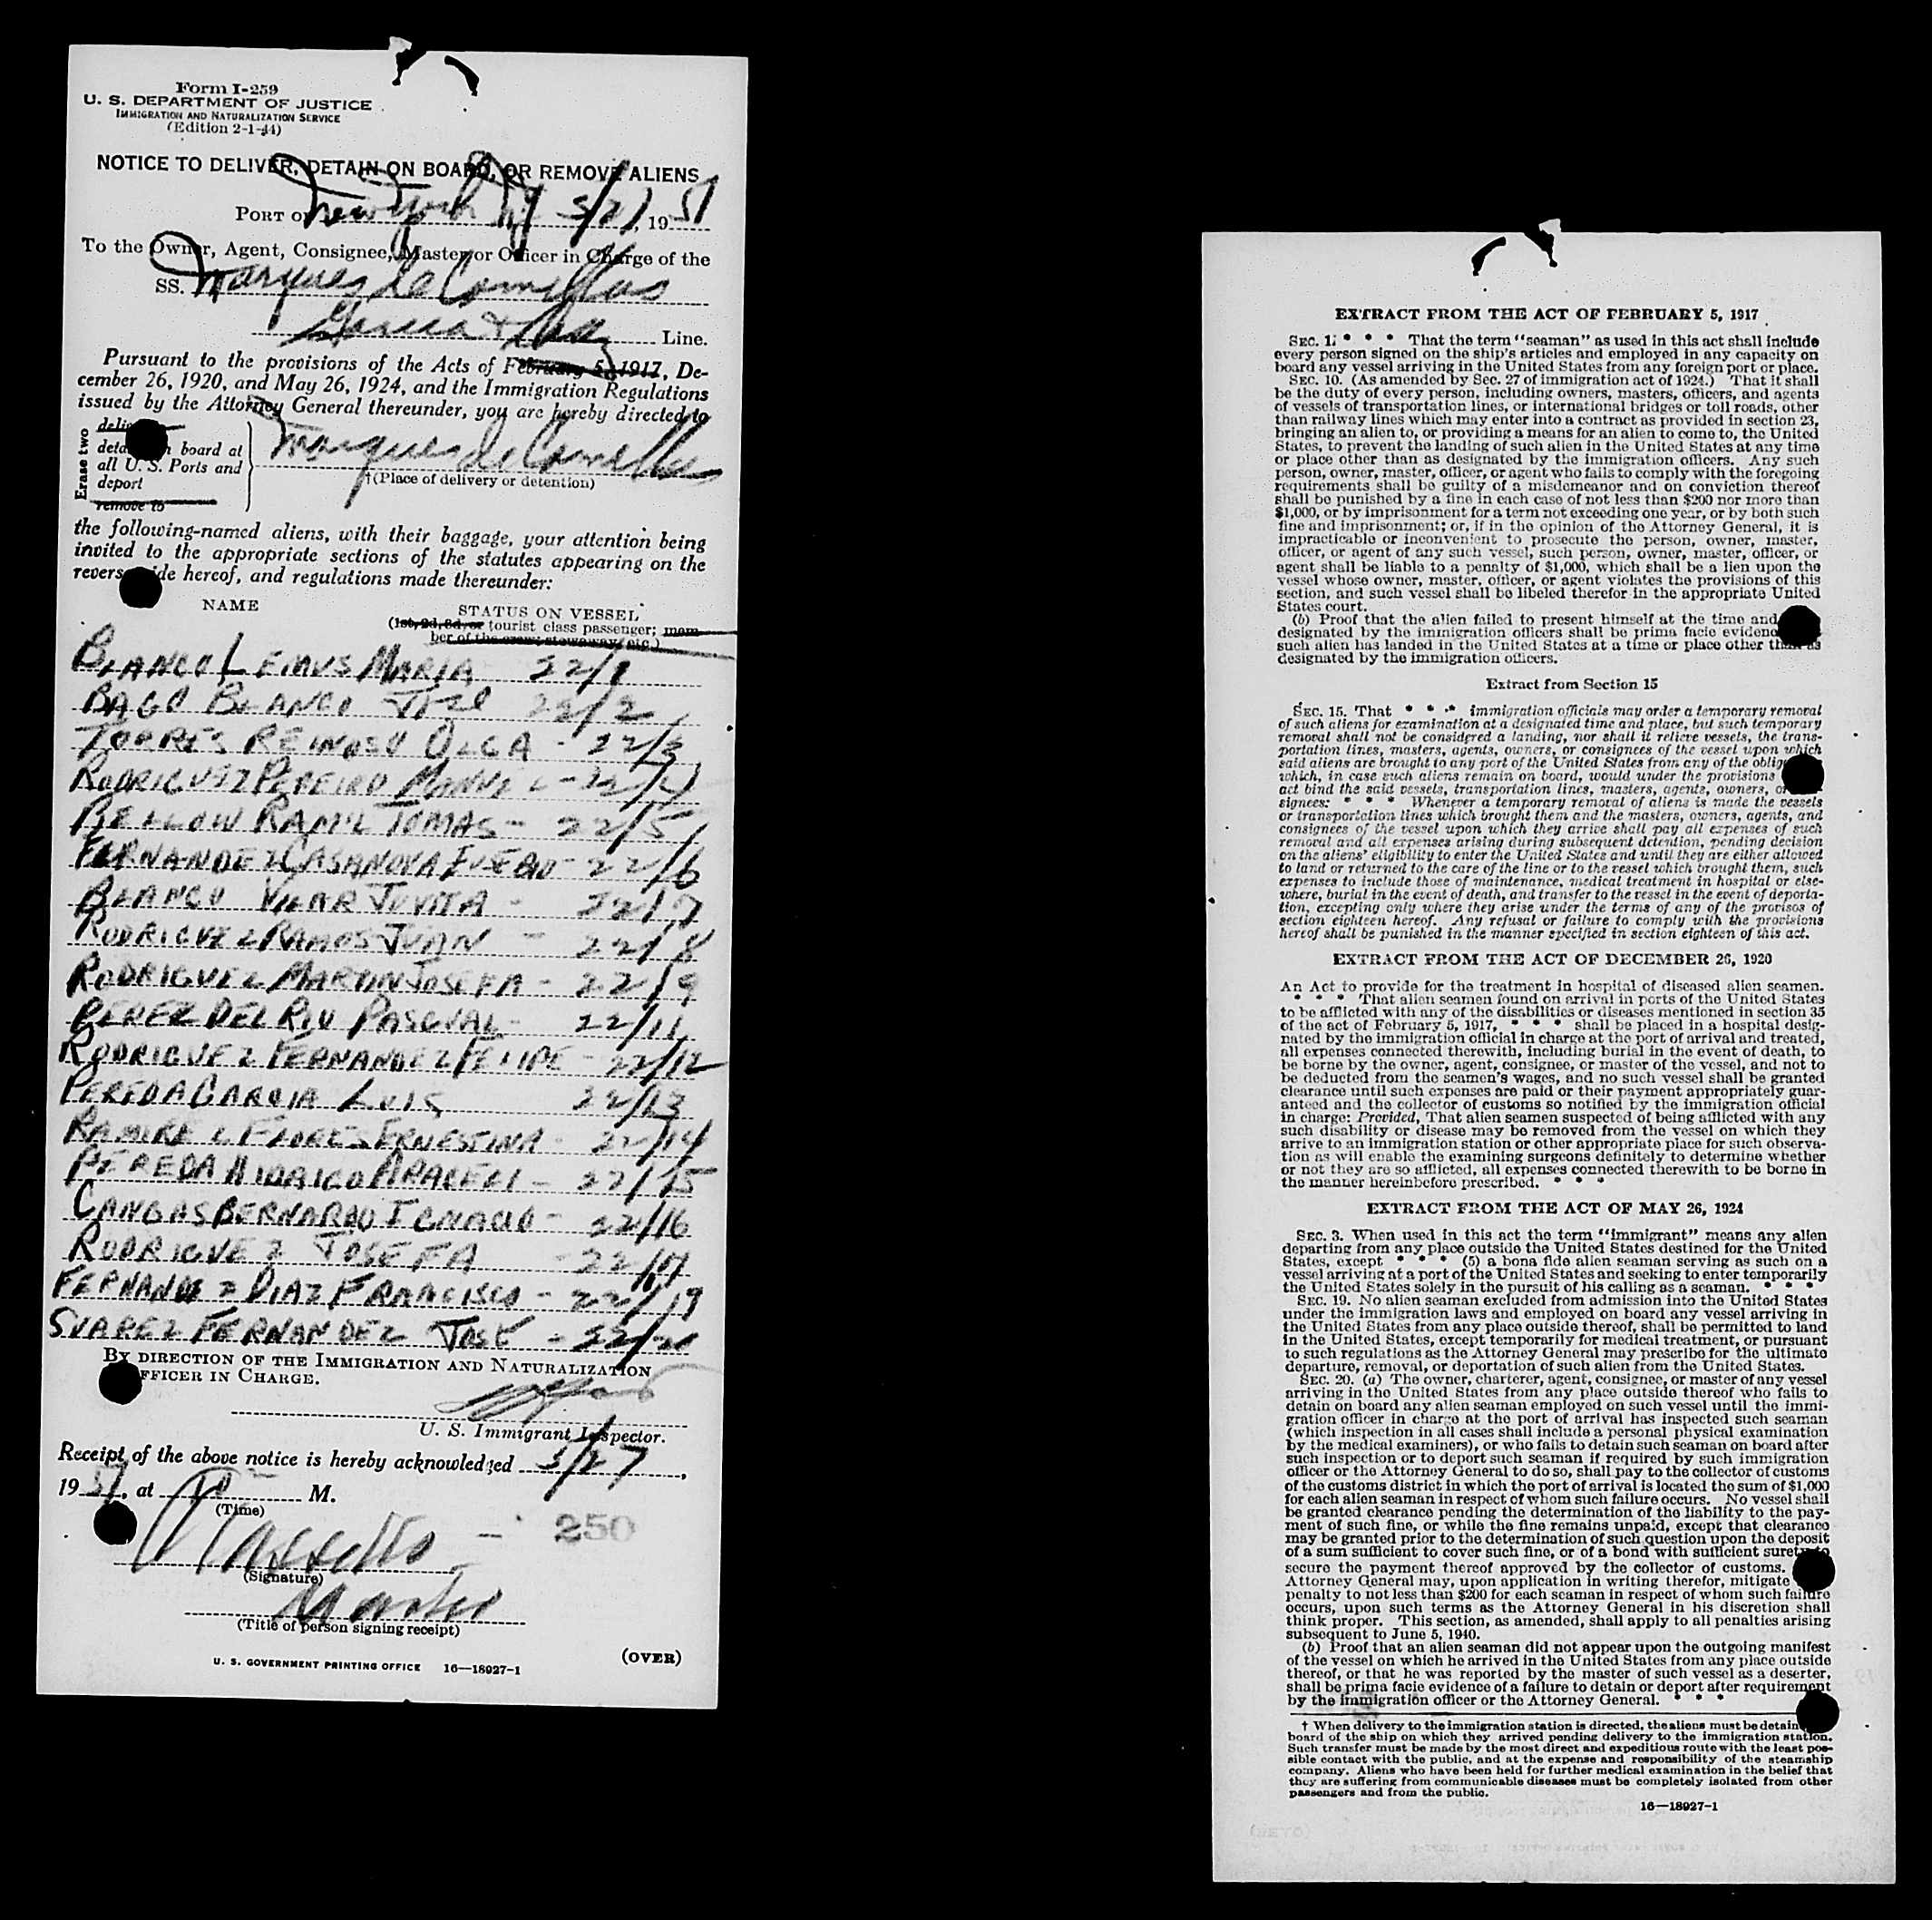 Form I-259
U. S. DEPARTMENT OF JUSTICE
IMMIGRATION AND NATURALIZATION SERVICE
(Edition 2-1-44)
NOTICE TO DELIVER, DETAIN ON BOARD, OR REMOVE ALIENS
PORT OF New York NY 3/27, 1951
To the Owner, Agent, Consignee, Master or Officer in Charge of the
SS. Marques de Comillas
Garcia & Line.
Pursuant to the provisions of the Acts of February 5, 1917, De-
cember 26, 1920, and May 26, 1924, and the Immigration Regulations
issued by the Attorney General thereunder, you are hereby directed to
Erase two
board at
all U. S. Ports and
deport
remove to
Marques de Comillas
†(Place of delivery or detention)
the following-named aliens, with their baggage, your attention being
invited to the appropriate sections of the statutes appearing on the
hereof, and regulations made thereunder:
NAME
STATUS ON VESSEL
(1st, 2d, 3d, or tourist class passenger; mem-
ber of the crew; stowaway, etc.)
BLANCO LEMUS MARIA 22/1
BAGO BLANCO JOSE 22/2
TORRES REINOSO OLGA - 22/3
RODRIGUEZ PEREIRO MANUEL - 22/4
BELLOW RAMIL TOMAS - 22/5
FERNANDEZ CASANOVA - 22/6
BLANCO VILAR JOVITA - 22/7
RODRIGUEZ RAMOS JUAN - 22/8
RODRIGUEZ MARTIN JOSEFA - 22/9
PEREZ DEL RIO PASCUAL - 22/11
RODRIGUEZ FERNANDEZ FELIPE - 22/12
PEREDA GARCIA LUIS 22/13
RAMIREZ FLORES ERNESTINA - 22/14
PEREDA HIDALGO ARACELI - 22/15
CANGAS BERNARDO IGNACIO - 22/16
RODRIGUEZ JOSEFA - 22/17
FERNANDEZ DIAZ FRANCISCO - 22/19
SUAREZ FERNANDEZ JOSE - 22/20
BY DIRECTION OF THE IMMIGRATION AND NATURALIZATION
OFFICER IN CHARGE.
U. S. Immigrant Inspector.
Receipt of the above notice is hereby acknowledged 3/27,
1951, at 10 M.
(Time)
250
(Signature)
Master
(Title of person signing receipt)
(OVER)
U. S. GOVERNMENT PRINTING OFFICE 16—18927-1
EXTRACT FROM THE ACT OF FEBRUARY 5, 1917
SEC. 1. * * * That the term "seaman" as used in this act shall include
every person signed on the ship's articles and employed in any capacity on
board any vessel arriving in the United States from any foreign port or place.
SEC. 10. (As amended by Sec. 27 of immigration act of 1924.) That it shall
be the duty of every person, including owners, masters, officers, and agents
of vessels of transportation lines, or international bridges or toll roads, other
than railway lines which may enter into a contract as provided in section 23,
bringing an alien to, or providing a means for an alien to come to, the United
States, to prevent the landing of such alien in the United States at any time
or place other than as designated by the immigration officers. Any such
person, owner, master, officer, or agent who fails to comply with the foregoing
requirements shall be guilty of a misdemeanor and on conviction thereof
shall be punished by a fine in each case of not less than $200 nor more than
$1,000, or by imprisonment for a term not exceeding one year, or by both such
fine and imprisonment; or, if in the opinion of the Attorney General, it is
impracticable or inconvenient to prosecute the person, owner, master,
officer, or agent of any such vessel, such person, owner, master, officer, or
agent shall be liable to a penalty of $1,000, which shall be a lien upon the
vessel whose owner, master, officer, or agent violates the provisions of this
section, and such vessel shall be libeled therefor in the appropriate United
States court.
(b) Proof that the alien failed to present himself at the time and
designated by the immigration officers shall be prima facie evidence
such alien has landed in the United States at a time or place other than as
designated by the immigration officers.
Extract from Section 15
SEC. 15. That * * * immigration officials may order a temporary removal
of such aliens for examination at a designated time and place, but such temporary
removal shall not be considered a landing, nor shall it relieve vessels, the trans-
portation lines, masters, agents, owners, or consignees of the vessel upon which
said aliens are brought to any port of the United States from any of the
which, in case such aliens remain on board, would under the provisions
act bind the said vessels, transportation lines, masters, agents, owners, or
signees: * * * Whenever a temporary removal of aliens is made the vessels
or transportation lines which brought them and the masters, owners, agents, and
consignees of the vessel upon which they arrive shall pay all expenses of such
removal and all expenses arising during subsequent detention, pending decision
on the aliens' eligibility to enter the United States and until they are either allowed
to land or returned to the care of the line or to the vessel which brought them, such
expenses to include those of maintenance, medical treatment in hospital or else-
where, burial in the event of death, and transfer to the vessel in the event of deporta-
tion, excepting only where they arise under the terms of any of the provisos of
section eighteen hereof. Any refusal or failure to comply with the provisions
hereof shall be punished in the manner specified in section eighteen of this act.
EXTRACT FROM THE ACT OF DECEMBER 26, 1920
An Act to provide for the treatment in hospital of diseased alien seamen.
* * * That alien seamen found on arrival in ports of the United States
to be afflicted with any of the disabilities or diseases mentioned in section 35
of the act of February 5, 1917, * * * shall be placed in a hospital desig-
nated by the immigration official in charge at the port of arrival and treated,
all expenses connected therewith, including burial in the event of death, to
be borne by the owner, agent, consignee, or master of the vessel, and not to
be deducted from the seamen's wages, and no such vessel shall be granted
clearance until such expenses are paid or their payment appropriately guar-
anteed and the collector of customs so notified by the immigration official
in charge: Provided, That alien seamen suspected of being afflicted with any
such disability or disease may be removed from the vessel on which they
arrive to an immigration station or other appropriate place for such observa-
tion as will enable the examining surgeons definitely to determine whether
or not they are so afflicted, all expenses connected therewith to be borne in
the manner hereinbefore prescribed. * * *
EXTRACT FROM THE ACT OF MAY 26, 1924
SEC. 3. When used in this act the term "immigrant" means any alien
departing from any place outside the United States destined for the United
States, except * * * (5) a bona fide alien seaman serving as such on a
vessel arriving at a port of the United States and seeking to enter temporarily
the United States solely in the pursuit of his calling as a seaman. * * *
SEC. 19. No alien seaman excluded from admission into the United States
under the immigration laws and employed on board any vessel arriving in
the United States from any place outside thereof, shall be permitted to land
in the United States, except temporarily for medical treatment, or pursuant
to such regulations as the Attorney General may prescribe for the ultimate
departure, removal, or deportation of such alien from the United States.
SEC. 20. (a) The owner, charterer, agent, consignee, or master of any vessel
arriving in the United States from any place outside thereof who fails to
detain on board any alien seaman employed on such vessel until the immi-
gration officer in charge at the port of arrival has inspected such seaman
(which inspection in all cases shall include a personal physical examination
by the medical examiners), or who fails to detain such seaman on board after
such inspection or to deport such seaman if required by such immigration
officer or the Attorney General to do so, shall pay to the collector of customs
of the customs district in which the port of arrival is located the sum of $1,000
for each alien seaman in respect of whom such failure occurs. No vessel shall
be granted clearance pending the determination of the liability to the pay-
ment of such fine, or while the fine remains unpaid, except that clearance
may be granted prior to the determination of such question upon the deposit
of a sum sufficient to cover such fine, or of a bond with sufficient surety to
secure the payment thereof approved by the collector of customs.
Attorney General may, upon application in writing therefor, mitigate
penalty to not less than $200 for each seaman in respect of whom such failure
occurs, upon such terms as the Attorney General in his discretion shall
think proper. This section, as amended, shall apply to all penalties arising
subsequent to June 5, 1940.
(b) Proof that an alien seaman did not appear upon the outgoing manifest
of the vessel on which he arrived in the United States from any place outside
thereof, or that he was reported by the master of such vessel as a deserter,
shall be prima facie evidence of a failure to detain or deport after requirement
by the immigration officer or the Attorney General. * * *
† When delivery to the immigration station is directed, the aliens must be
board of the ship on which they arrived pending delivery to the immigration station.
Such transfer must be made by the most direct and expeditious route with the least pos-
sible contact with the public, and at the expense and responsibility of the steamship
company. Aliens who have been held for further medical examination in the belief that
they are suffering from communicable diseases must be completely isolated from other
passengers and from the public.
16—18927-1